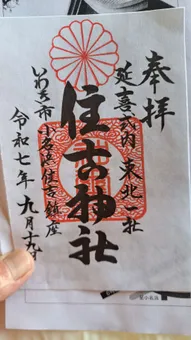 奉拝
延喜式内 東北一社
住吉神社
いわき市小名浜住吉鎮座
令和七年九月十九日